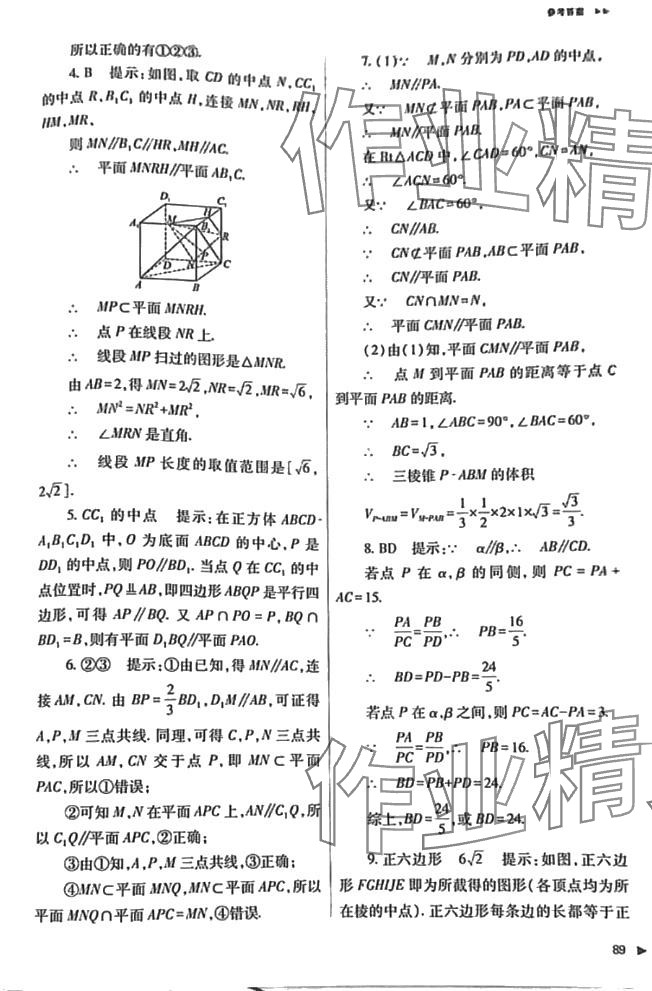 参考答案 ▶▶
所以正确的有①②③.
4. B 提示:如图,取 CD 的中点 N,CC₁
的中点 R,B₁C₁ 的中点 H,连接 MN,NR,RH,
HM,MR,
则 MN∥B₁C∥HR,MH∥AC.
∴ 平面 MNRH∥平面 AB₁C.
D₁ C₁ H A₁ M B₁ R P D N C A B
∴ MP⊂平面 MNRH.
∴ 点 P 在线段 NR 上.
∴ 线段 MP 扫过的图形是△MNR.
由 AB=2,得 MN=2√2,NR=√2,MR=√6,
∴ MN²=NR²+MR²,
∴ ∠MRN 是直角.
∴ 线段 MP 长度的取值范围是[√6,
2√2].
5. CC₁ 的中点 提示:在正方体 ABCD-
A₁B₁C₁D₁ 中,O 为底面 ABCD 的中心,P 是
DD₁ 的中点,则 PO∥BD₁. 当点 Q 在 CC₁ 的中
点位置时,PQ⫫AB,即四边形 ABQP 是平行四
边形,可得 AP∥BQ. 又 AP∩PO=P,BQ∩
BD₁=B,则有平面 D₁BQ∥平面 PAO.
6. ②③ 提示:①由已知,得 MN∥AC,连
接 AM,CN. 由 BP=2/3BD₁,D₁M∥AB,可证得
A,P,M 三点共线. 同理,可得 C,P,N 三点共
线,所以 AM,CN 交于点 P,即 MN⊂平面
PAC,所以①错误;
②可知 M,N 在平面 APC 上,AN∥C₁Q,所
以 C₁Q∥平面 APC,②正确;
③由①知,A,P,M 三点共线,③正确;
④MN⊂平面 MNQ,MN⊂平面 APC,所以
平面 MNQ∩平面 APC=MN,④错误.
7. (1)∵ M,N 分别为 PD,AD 的中点,
∴ MN∥PA.
又∵ MN⊄平面 PAB,PA⊂平面 PAB,
∴ MN∥平面 PAB.
在 Rt△ACD 中,∠CAD=60°,CN=AN,
∴ ∠ACN=60°.
又∵ ∠BAC=60°,
∴ CN∥AB.
∵ CN⊄平面 PAB,AB⊂平面 PAB,
∴ CN∥平面 PAB.
又∵ CN∩MN=N,
∴ 平面 CMN∥平面 PAB.
(2)由(1)知,平面 CMN∥平面 PAB,
∴ 点 M 到平面 PAB 的距离等于点 C
到平面 PAB 的距离.
∵ AB=1,∠ABC=90°,∠BAC=60°,
∴ BC=√3,
∴ 三棱锥 P-ABM 的体积
V_{P-ABM}=V_{M-PAB}=1/3×1/2×2×1×√3=√3/3.
8. BD 提示:∵ α∥β,∴ AB∥CD.
若点 P 在 α,β 的同侧,则 PC=PA+
AC=15.
∵ PA/PC=PB/PD,∴ PB=16/5.
∴ BD=PD-PB=24/5.
若点 P 在 α,β 之间,则 PC=AC-PA=3.
∵ PA/PC=PB/PD,∴ PB=16.
∴ BD=PB+PD=24.
综上,BD=24/5,或 BD=24.
9. 正六边形 6√2 提示:如图,正六边
形 FGHIJE 即为所截得的图形(各顶点均为所
在棱的中点). 正六边形每条边的长都等于正
89 ▶
作业精
作业精